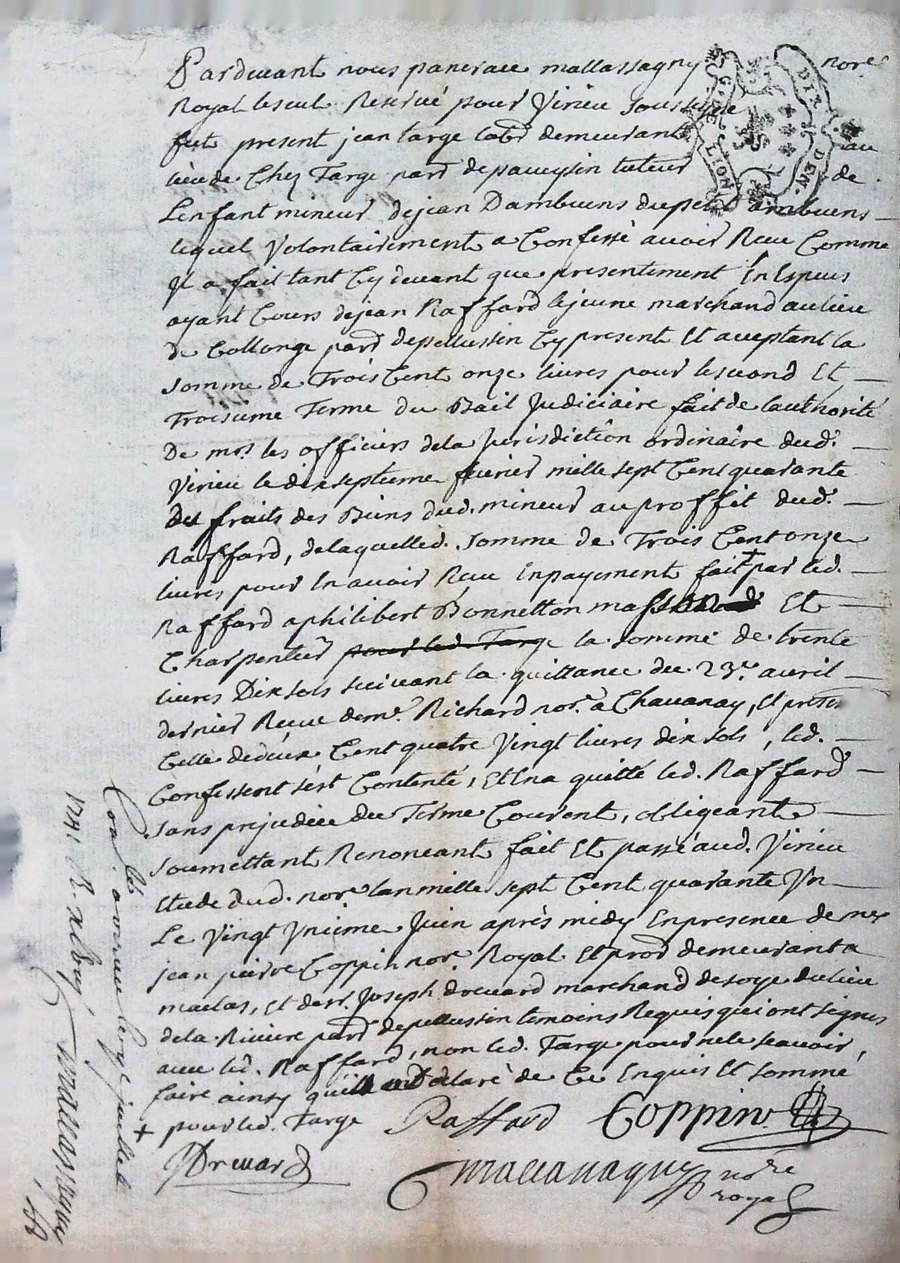 Pardevant nous pancrace mallassagny nore
Royal le seul Reservé pour Virieu soussigné
fut present jean targe labr demeurant au
lieu de Chez Targe parr de pauezin tuteur de
Lenfant mineur de jean Dambuens du petit Dambuens
lequel Volontairement a Confessé avoir Receu Comme
Il a fait tant Cy devant que presentement En Espeus
ayant Cours de jean Raffard le jeune marchand au lieu
de Collonge parr de pellussin Cy present Et aceptant la
somme de Trois Cent onze livres pour le second Et
Troisieme Terme du Bail Judiciaire fait de lauthorité
De mrs les officiers de la Jurisdiction ordinaire dud.
Virieu le dix septieme fevrier mille sept Cent quarante
des fruits des Biens dud. mineur au proffit dud.
Raffard, de laquelle d. somme de Trois Cent onze
livres pour En avoir Receu En payement fait + par led.
Raffard a philibert Bonnetton masson Et
Charpentier pour led. Targe la somme de trente
livres Dix sols suivant la quittance du 23e. avril
dernier Receue de me. Richard nore. a Chavanay, Et
Celle de deux Cent quatre Vingt livres dix sols, led.
Confessent s'est Contenté, Et En a quitté led. Raffard
sans prejudice du Terme Courent, obligeant
soumettant Renoncant fait Et passé aud. Virieu
Etude dud. nore. lan mille sept Cent quarante Un
Le Vingt Unieme Juin après midy En presence de me
jean pierre Coppin nore. Royal Et procr demeurant a
maclas, Et de sr. Joseph dreuard marchand de soye du lieu
de la Riviere parr. de pellussin temoins Requis qui ont signés
avec led. Raffard, non led. Targe pour ne le scavoir
faire ainsy quil a declaré de Ce Enquis Et sommé
+ pour led. Targe Raffard Coppin
JDreuard
nore
royal
Con. le a le seize juillet
1741 R